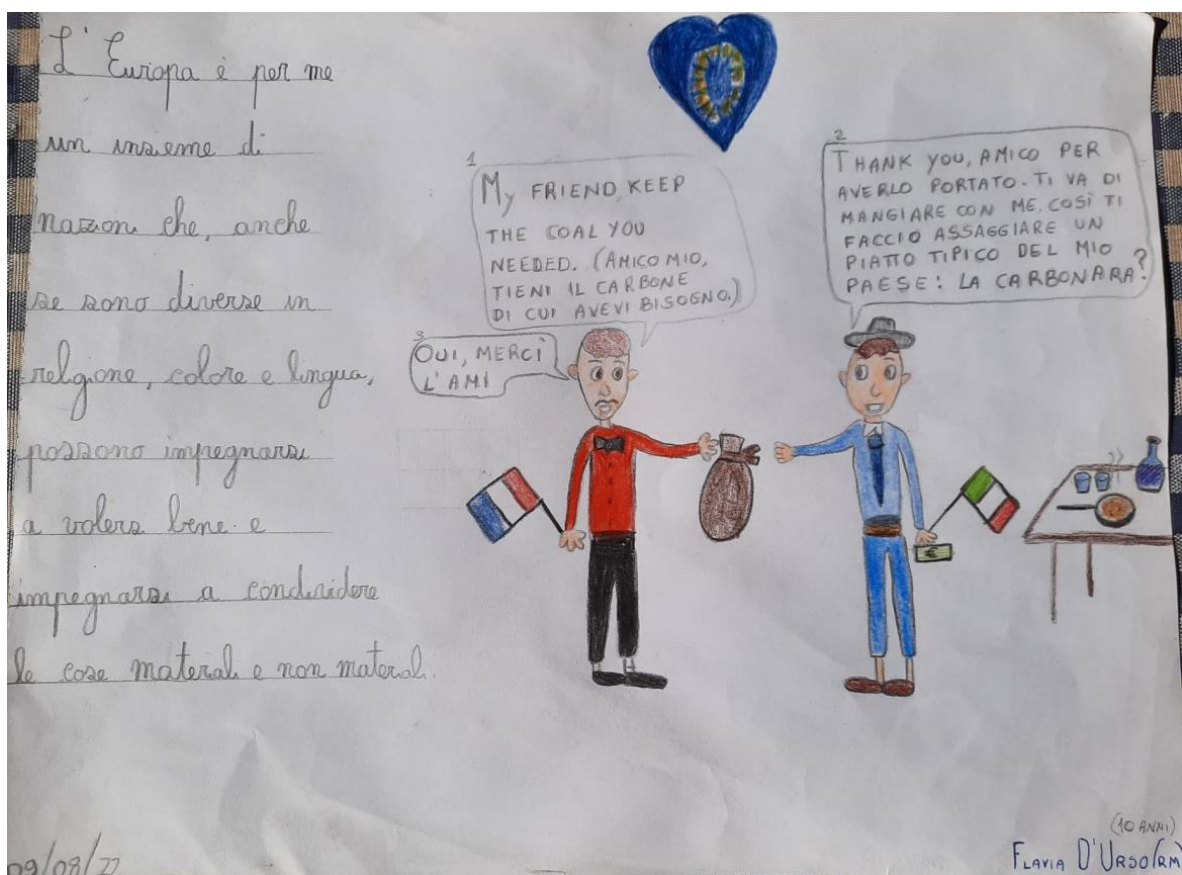 L'Europa è per me
un insieme di
nazioni che, anche
se sono diverse in
religione, colore e lingua,
possono impegnarsi
a volersi bene e
impegnarsi a condividere
le cose materiali e non materiali.
1
My FRIEND, KEEP
THE COAL YOU
NEEDED. (AMICO MIO,
TIENI IL CARBONE
DI CUI AVEVI BISOGNO.)
2
THANK YOU, AMICO PER
AVERLO PORTATO. TI VA DI
MANGIARE CON ME, COSÌ TI
FACCIO ASSAGGIARE UN
PIATTO TIPICO DEL MIO
PAESE: LA CARBONARA?
3
OUI, MERCÌ
L'AMI
€
09/08/22
(10 ANNI)
FLAVIA D'URSO (RM)